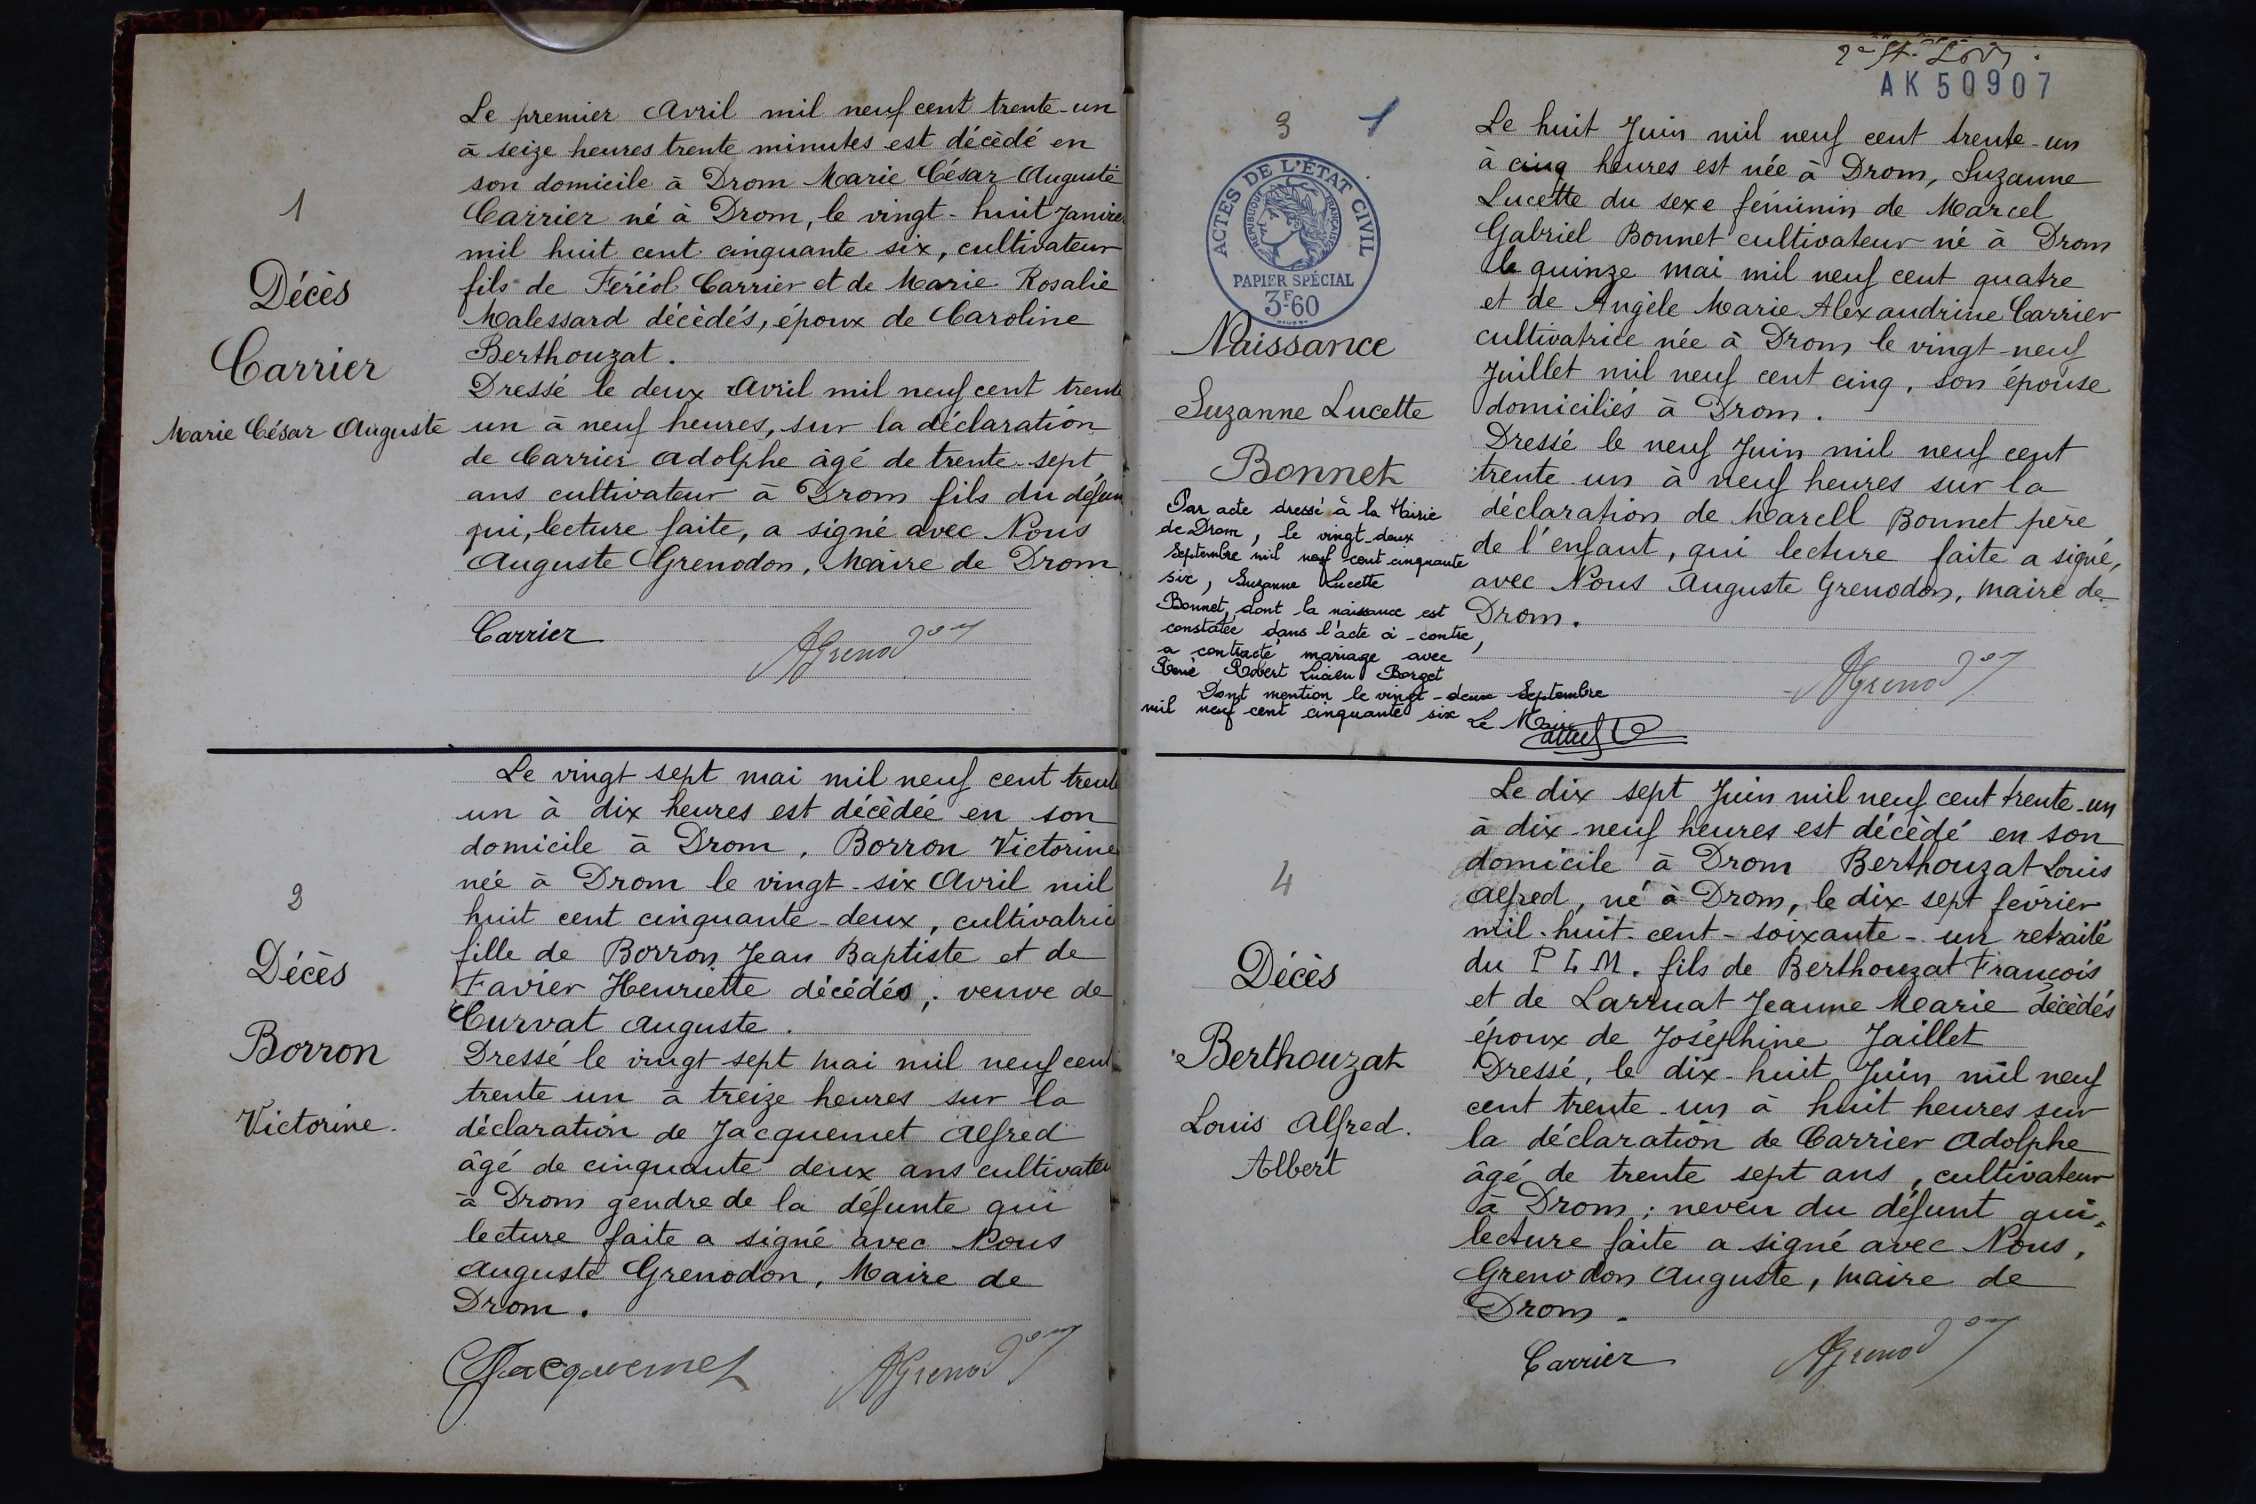 1
Décès
Carrier
Marie César Auguste
Le premier Avril mil neuf cent trente-un
à seize heures trente minutes est décèdé en
son domicile à Drom Marie César Auguste
Carrier né à Drom, le vingt-huit Janvier
mil huit cent cinquante six, cultivateur
fils de Feréol Carrier et de Marie Rosalie
Malessard décèdés, époux de Caroline
Berthouzat.
Dressé le deux Avril mil neuf cent trente
un à neuf heures, sur la déclaration
de Carrier Adolphe âgé de trente-sept
ans cultivateur à Drom fils du défun
qui, lecture faite, a signé avec Nous
Auguste Grenodon, Maire de Drom
Carrier
AGrenodon
2
Décès
Borron
Victorine.
Le vingt sept mai mil neuf cent trente
un à dix heures est décèdée en son
domicile à Drom, Borron Victorine
née à Drom le vingt-six Avril mil
huit cent cinquante-deux, cultivatric
fille de Borron Jean Baptiste et de
Favier Henriette décédés; veuve de
Curvat Auguste.
Dressé le vingt sept mai mil neuf cent
trente un à treize heures sur la
déclaration de Jacquemet Alfred
âgé de cinquante deux ans cultivateu
à Drom gendre de la défunte qui
lecture faite a signé avec Nous
Auguste Grenodon, Maire de
Drom.
Jacquemet
AGrenodon
AK 50907
3
1
ACTES DE L'ÉTAT CIVIL
REPUBLIQUE FRANÇAISE
PAPIER SPÉCIAL
3F60
Naissance
Suzanne Lucette
Bonnet
Par acte dressé à la Mairie
de Drom, le vingt-deux
Septembre mil neuf cent cinquante
six, Suzanne Lucette
Bonnet, dont la naissance est
constatée dans l'acte ci-contre,
a contracté mariage avec
René Robert Lucien Borget
Dont mention le vingt-deux Septembre
mil neuf cent cinquante six
Le Maire
Le huit Juin mil neuf cent trente-un
à cinq heures est née à Drom, Suzanne
Lucette du sexe féminin de Marcel
Gabriel Bonnet cultivateur né à Drom
le quinze mai mil neuf cent quatre
et de Angèle Marie Alexandrine Carrier
cultivatrice née à Drom le vingt-neuf
Juillet mil neuf cent cinq, son épouse
domiciliés à Drom.
Dressé le neuf Juin mil neuf cent
trente un à neuf heures sur la
déclaration de Marcell Bonnet père
de l'enfant, qui lecture faite a signé,
avec Nous Auguste Grenodon, maire de
Drom.
AGrenodon
4
Décès
Berthouzat
Louis Alfred.
Albert
Le dix sept Juin mil neuf cent trente-un
à dix-neuf heures est décèdé en son
domicile à Drom Berthouzat Louis
Alfred, né à Drom, le dix-sept février
mil-huit-cent-soixante-un retraité
du P L M. fils de Berthouzat François
et de Larruat Jeanne Marie décèdés
époux de Joséphine Jaillet
Dressé, le dix-huit Juin mil neuf
cent trente-un à huit heures sur
la déclaration de Carrier Adolphe
âgé de trente sept ans, cultivateur
à Drom; neveu du défunt qui,
lecture faite a signé avec Nous,
Grenodon Auguste, maire de
Drom.
Carrier
AGrenodon